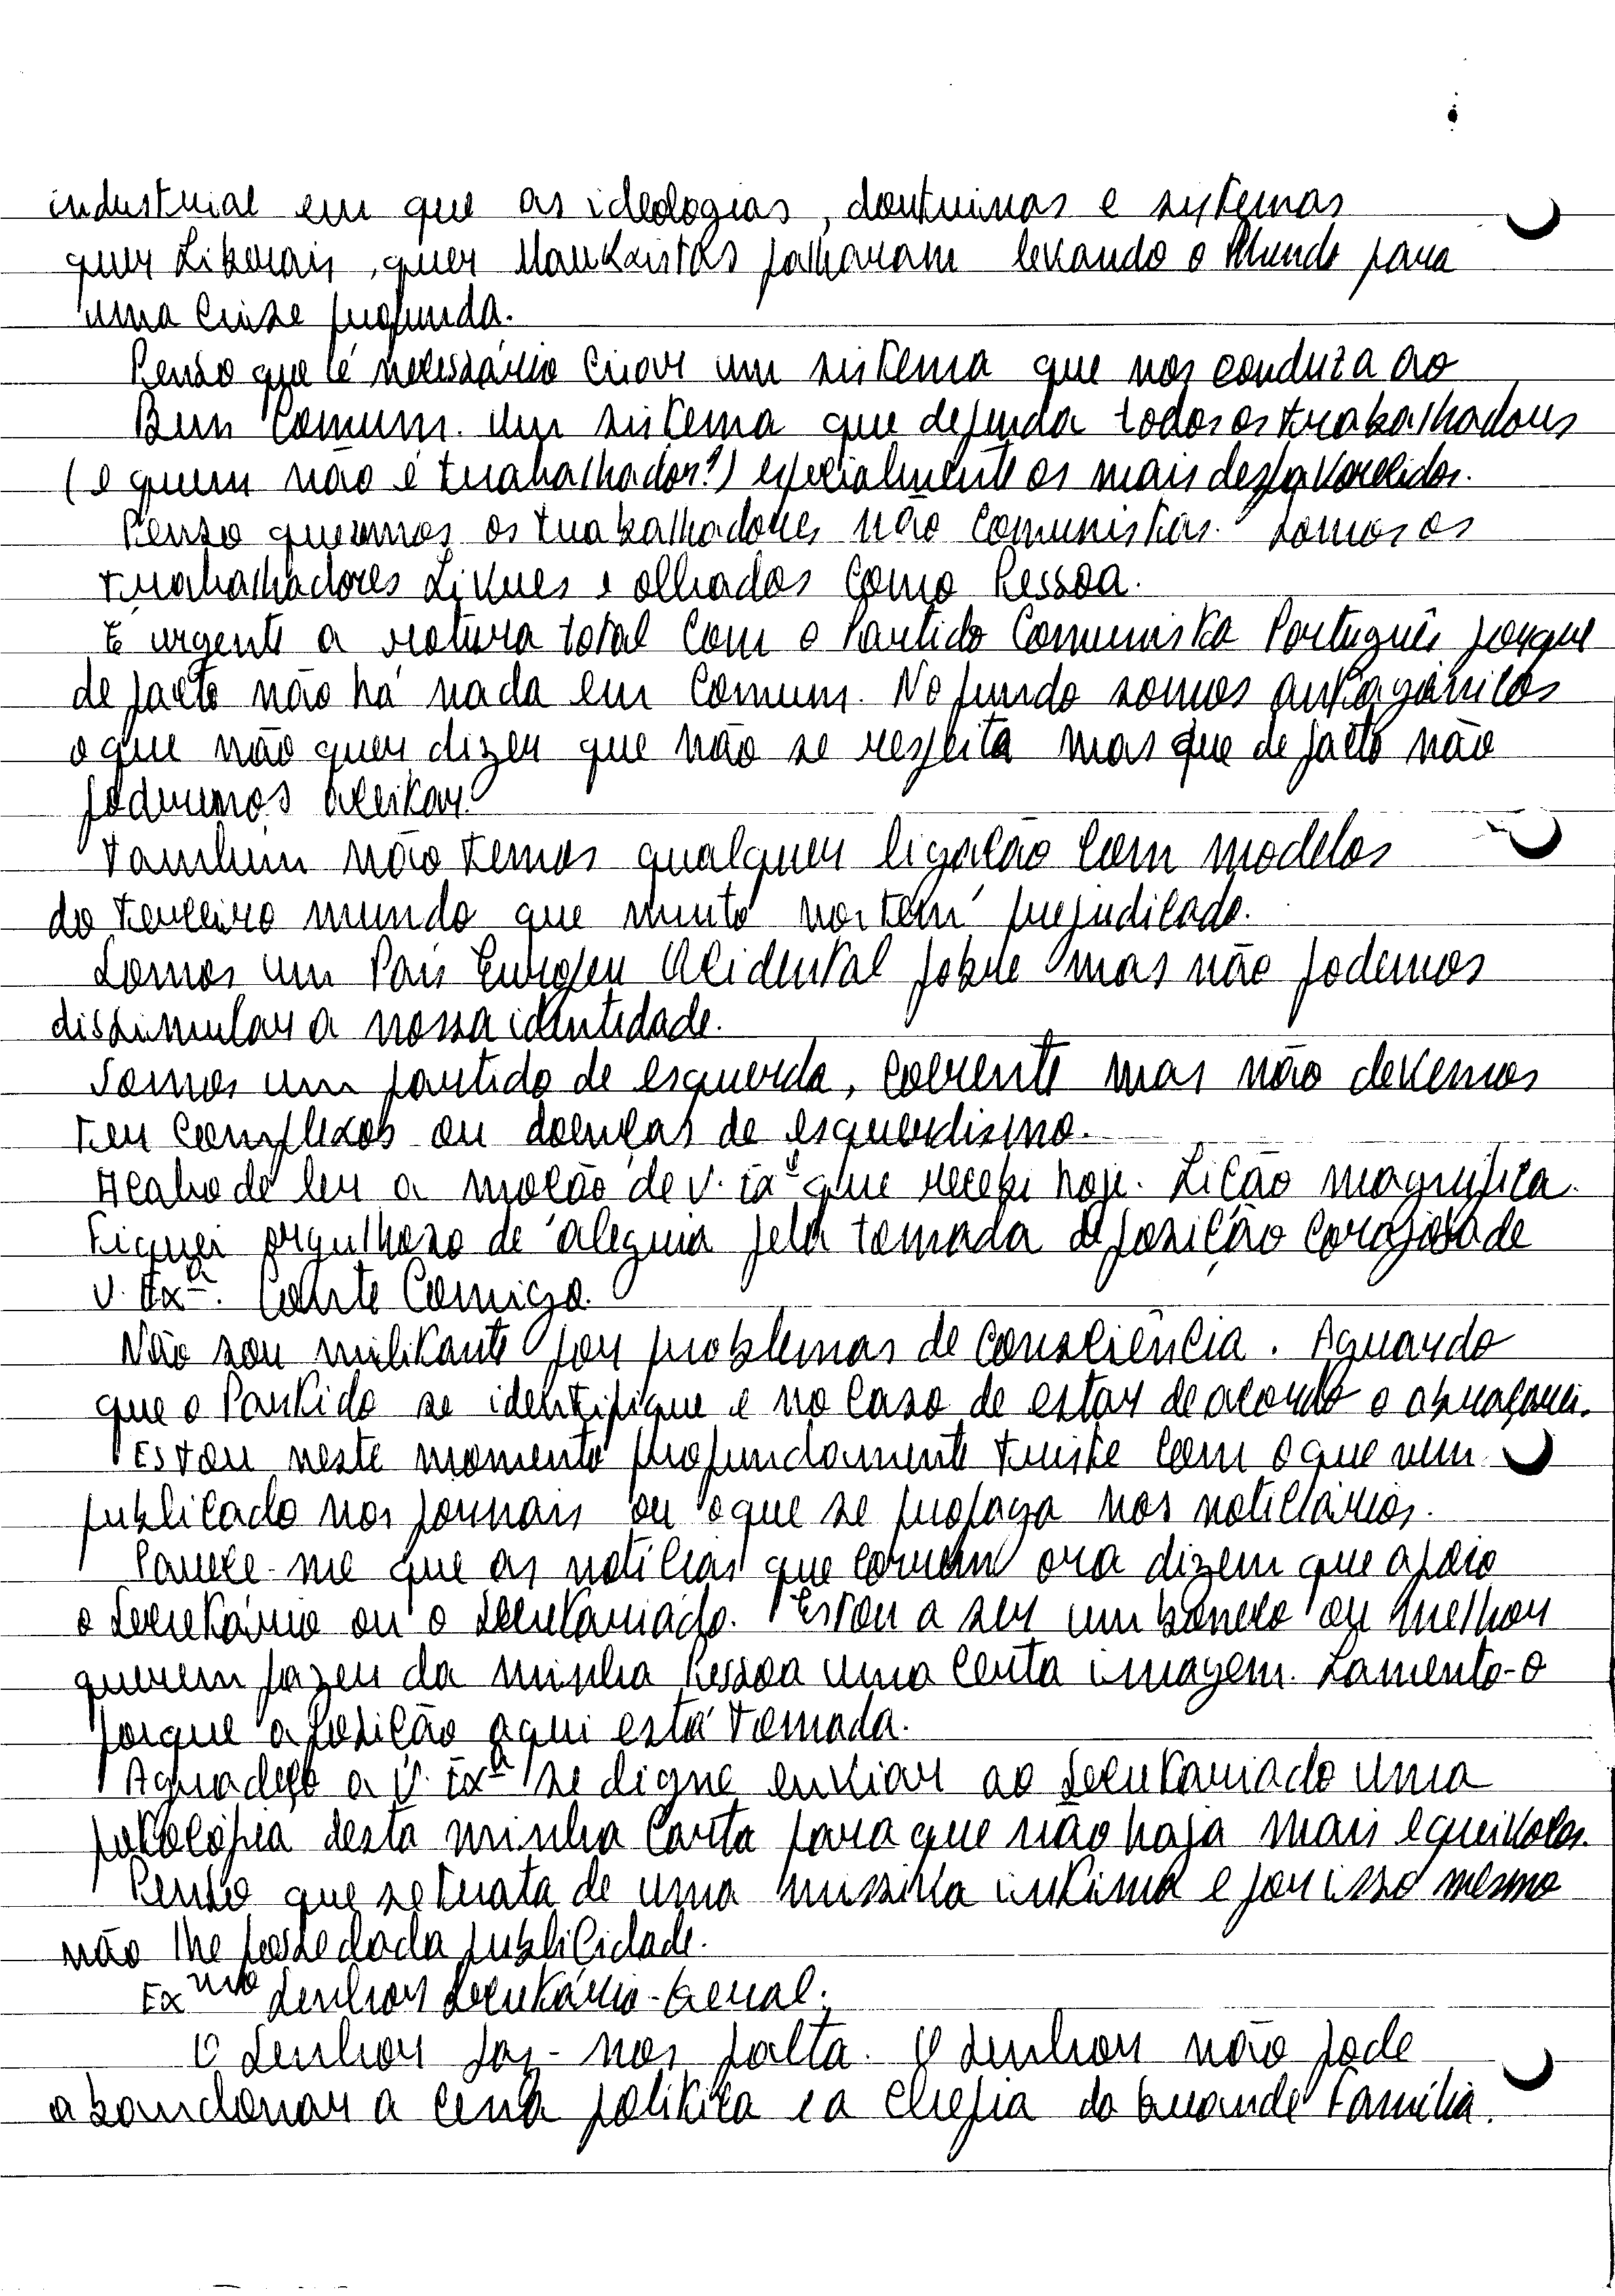 industrial em que as ideologias, doutrinas e sistemas
quer Liberais, quer Marxistas falharam levando o Mundo para
uma Crise profunda.
Penso que é necessário Criar um sistema que nos conduza ao
Bem Comum. Um sistema que defenda todos os trabalhadores
(e quem não é trabalhador?) especialmente os mais desfavorecidos.
Penso os trabalhadores não Comunistas. Somos os
trabalhadores Livres e olhados Como Pessoa.
É urgente a rotura total Com o Partido Comunista Português porque
de facto não há nada em Comum. No fundo somos antagónicos
o que não quer dizer que não se respeita mas que de facto não
poderemos aceitar.
Também não temos qualquer ligação Com modelos
do terceiro mundo que muito nos tem prejudicado.
Somos um País Europeu Ocidental pobre mas não podemos
dissimular a nossa identidade.
Somos um partido de esquerda, Coerente mas não devemos
ter Complexos ou doenças de esquerdismo.
Acabo de ler a moção de V. Exª que recebi hoje. Lição magnífica.
Fiquei orgulhoso de alegria pela tomada de posição Corajosa de
V. Exª. Conte Comigo.
Não sou militante por problemas de Consciência. Aguardo
que o Partido se identifique e no Caso de estar de acordo o abraçarei.
Estou neste momento profundamente triste Com o que vem
publicado nos jornais ou o que se propaga nos noticiários.
Parece-me que as notícias que Correm ora dizem que apoio
o Secretário ou o Secretariado. Estou a ser um boneco ou melhor
querem fazer da minha Pessoa uma Certa imagem. Lamento-o
porque a posição aqui está tomada.
Agradeço a V. Exª se digne enviar ao Secretariado uma
fotocópia desta minha Carta para que não haja mais equívocos.
Penso que se trata de uma missiva íntima e por isso mesmo
não lhe posse dada publicidade.
Exmo Senhor Secretário-Geral:
O Senhor faz-nos falta. O Senhor não pode
abandonar a Cena política e a Chefia da Grande Família.